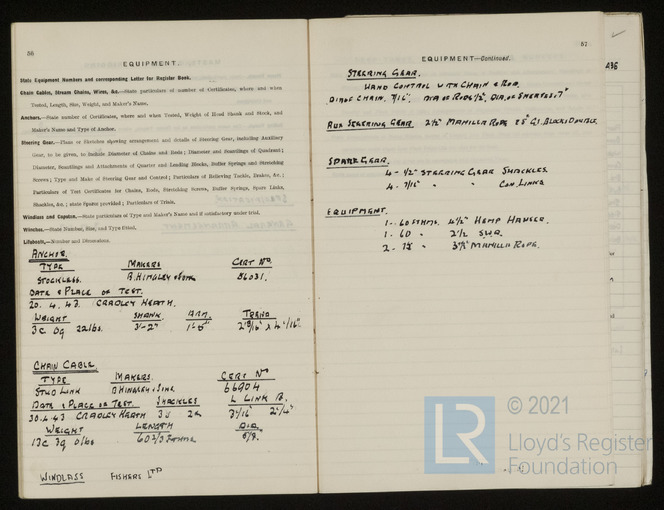 56
EQUIPMENT.
State Equipment Numbers and corresponding Letter for Register Book.
Chain Cables, Stream Chains, Wires, &c.—State particulars of number of Certificates, where and when
Tested, Length, Size, Weight, and Maker's Name.
Anchors.—State number of Certificate, where and when Tested, Weight of Head Shank and Stock, and
Maker's Name and Type of Anchor.
Steering Gear.—Plans or Sketches showing arrangement and details of Steering Gear, including Auxiliary
Gear, to be given, to include Diameter of Chains and Rods; Diameter and Boardings of Quadrant;
Diameter, Boardings and Attachments of Quarter and Leading Blocks, Buffer Springs and Stretching
Screws; Type and Make of Steering Gear and Control; Particulars of Relieving Tackle, Brakes, &c.;
Particulars of Test Certificates for Chains, Rods, Stretching Screws, Buffer Springs, Spare Links,
Shackles, &c.; state Spares provided; Particulars of Trials.
Windlass and Capstan.—State particulars of Type and Maker's Name and if satisfactory under trial.
Winches.—State Number, Size, and Type fitted.
Lifeboats.—Number and Dimensions.
ANCHOR.
TYPE MAKERS CERT NO.
STOCKLESS. B. HINGLEY & SONS 56031.
DATE & PLACE OF TEST.
20. 4. 43. CRADLEY HEATH.
WEIGHT SHANK ARM. TREND
3c 0q 22lbs. 3'-2"
CHAIN CABLE.
TYPE MAKERS. CERT NO
STUD LINK B HINGLEY & SONS 66904
DATE & PLACE OF TEST. SHACKLES L LINK B.
30.4.43 CRADLEY HEATH
WEIGHT LENGTH DIA.
13c 3q 0lbs 60 2/3
WINDLASS FISHERS LTD
57
EQUIPMENT—Continued.
STEERING GEAR.
HAND CONTROL WITH CHAIN & ROD.
DIA OF CHAIN. 7/16", DIA OF RODS 1/2", DIA. OF SHEAVES, 7"
AUX STEERING GEAR 2 1/2" MANILLA ROPE & 5" G.I. BLOCKS DOUBLE.
SPARE GEAR.
4 - 1/2" STEERING GEAR SHACKLES.
4 - 7/16" " " CON. LINKS
EQUIPMENT.
1 - 60 FTHMS. 4 1/2" HEMP HAWSER.
1 - 60 " 2 1/2 S.W.R.
2 - 75 " MANILLA ROPE.
© 2021
LR
Lloyd's Register
Foundation